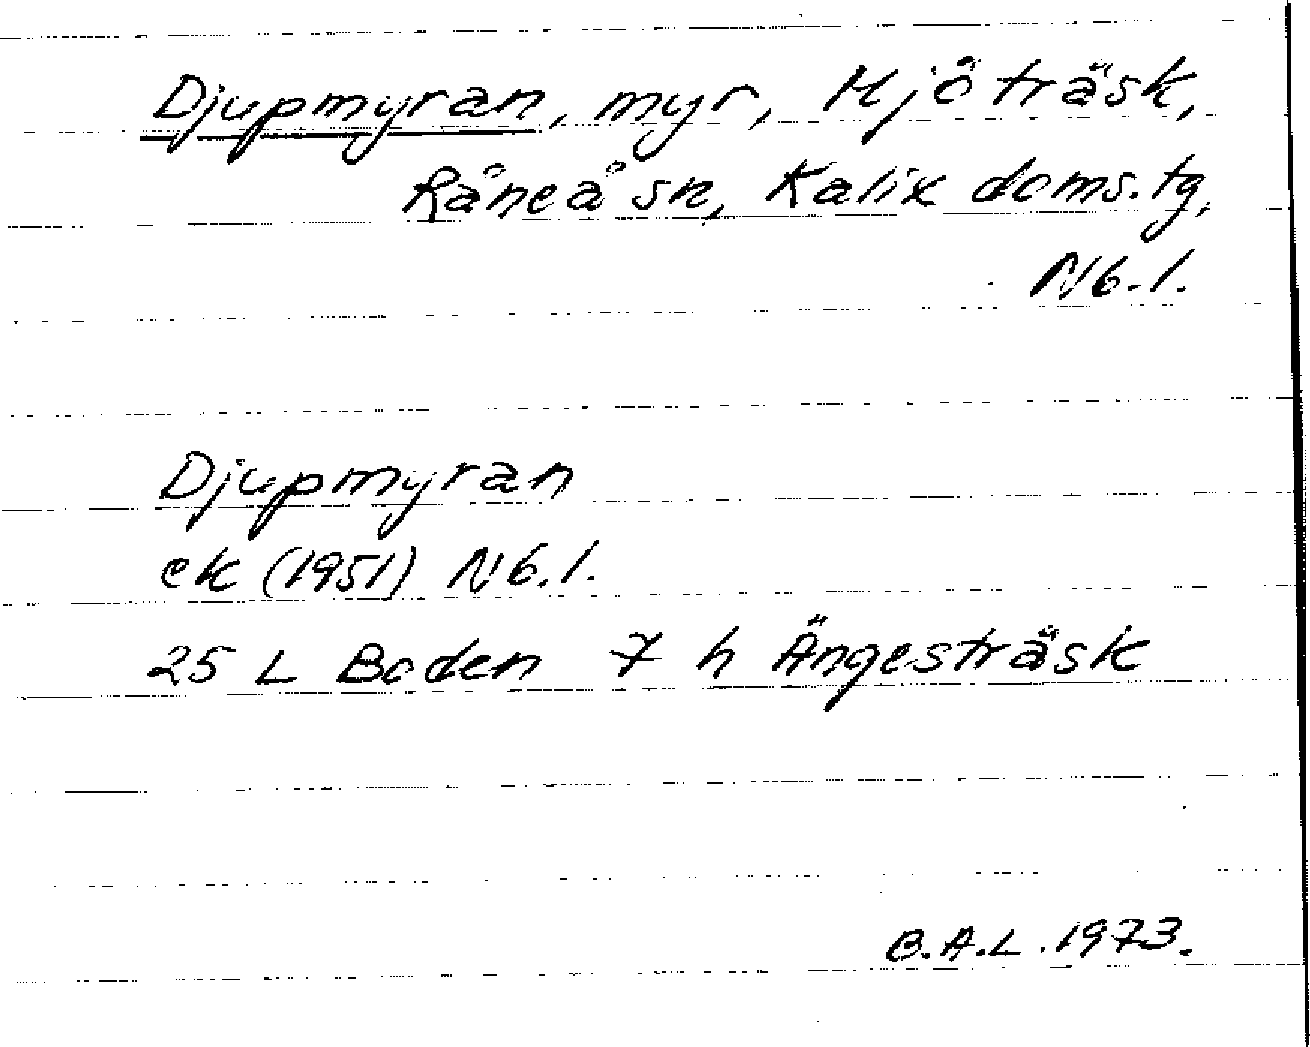 Djupmyran, myr, Hjöträsk,
Råneå sn, Kalix doms.tg,
Nb.l.
Djupmyran
ek (1951) Nb.l.
25 L Boden 7 h Ängesträsk
B.A.L. 1973.